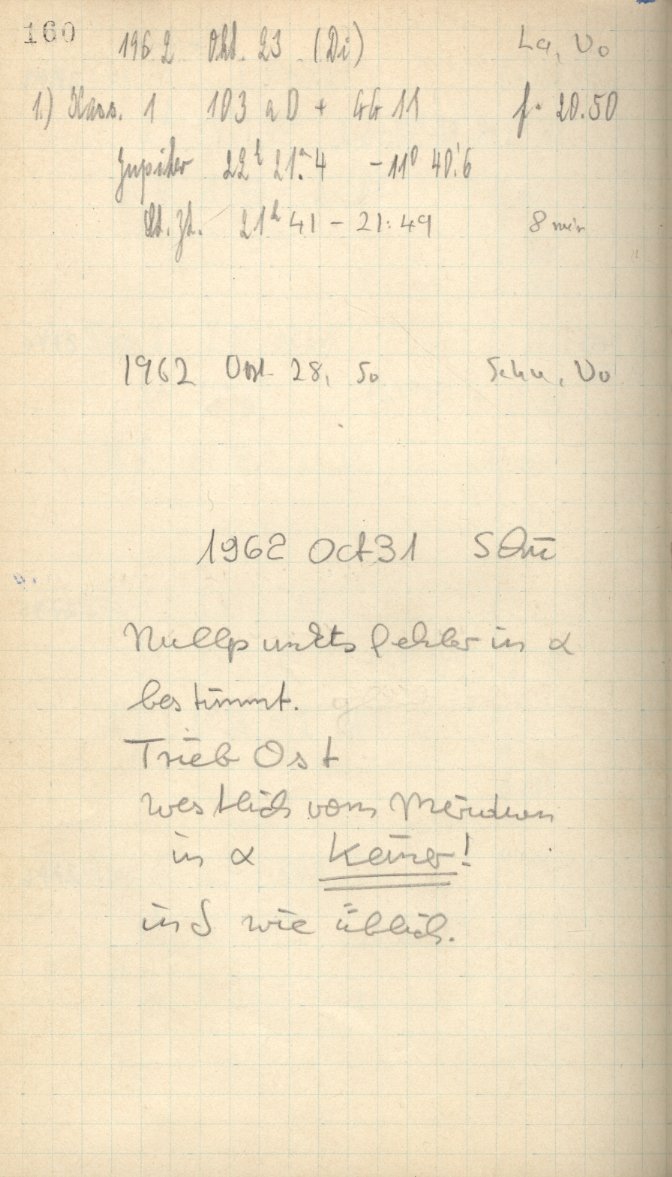 160
1962 Okt. 23. (Di) La, Vo
1.) Kass. 1 103 a D + GG 11 f = 20.50
Jupiter 22h 21m.4 -11° 40'.6
21h 41 - 21:49 8 min
1962 Okt 28, So Schu, Vo
1962 Oct 31 Schü
Nullpunktsfehler in α
bestimmt.
Trieb Ost
westlich vom Meridian
in α Keiner!
in δ wie üblich.